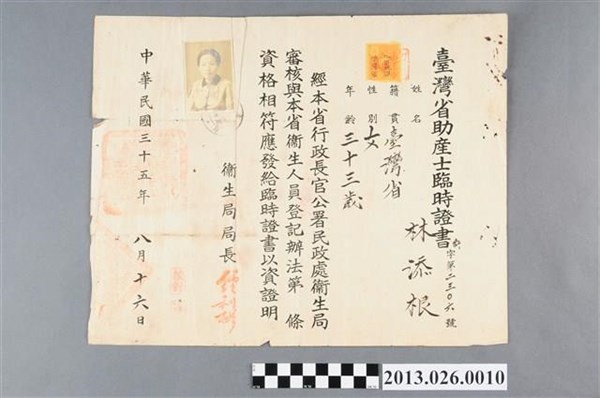 臺灣省助産士臨時證書
字第二三〇六號
姓名 林添根
籍貫 臺灣省
性別 女
年龄 三十三歲
經本省行政長官公署民政處衞生局
審核與本省衞生人員登記辦法第 條
資格相符應發給臨時證書以資證明
衞生局局長
中華民國三十五年 八月十六日
2013.026.0010